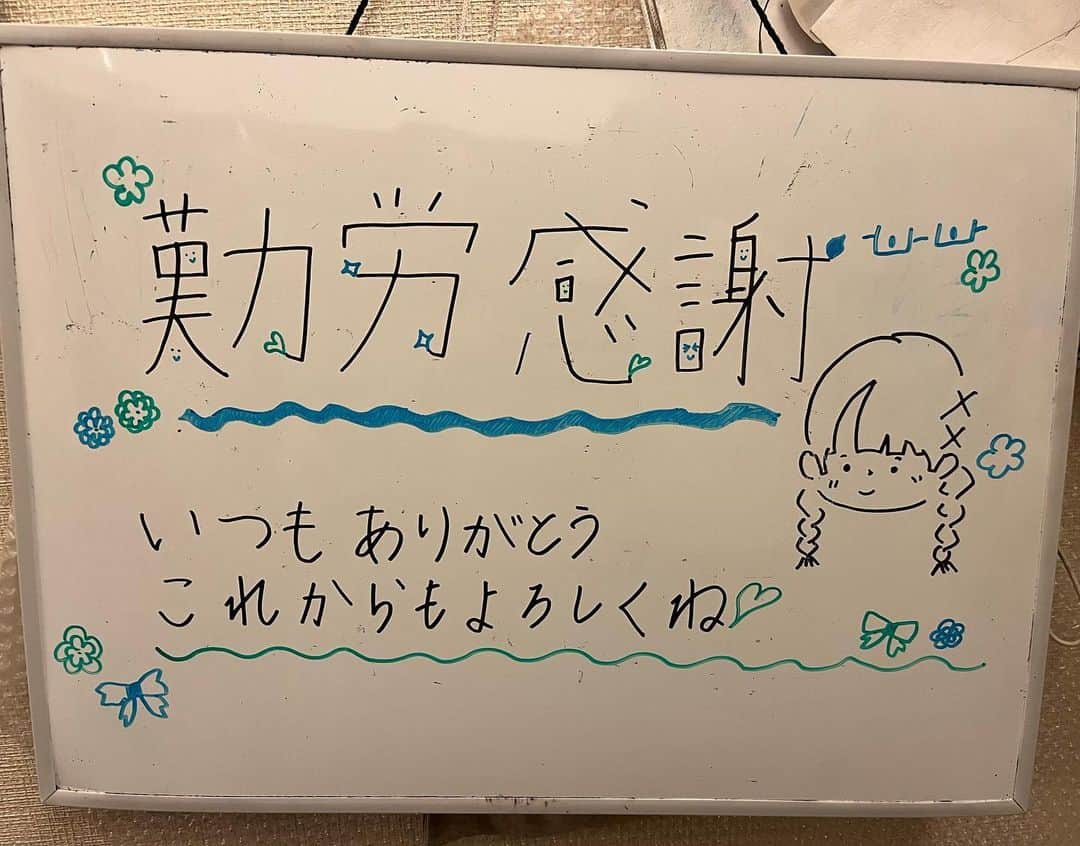 勤労感謝
いつも ありがとう
これからもよろしくね